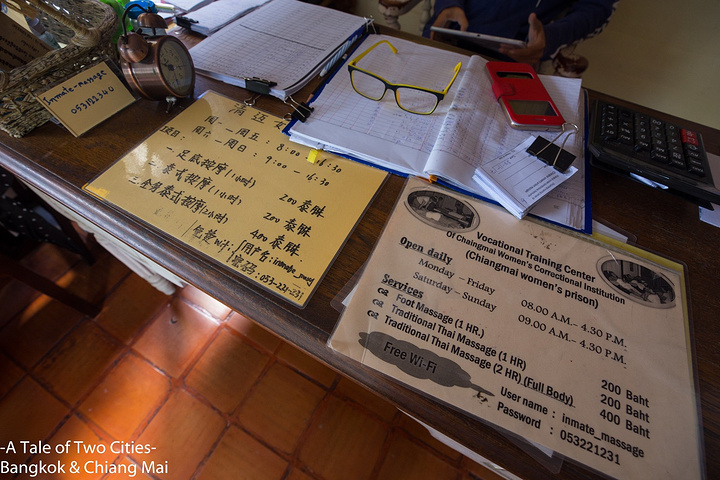 Inmate-massage
周一-周五 : 8:00 - 16:30
周六-周日 : 9:00 - 16:30
项目:
一.足底按摩 (1小时) 200 泰铢
二.泰式按摩 (1小时) 200 泰铢
全身泰式按摩 (2小时) 400 泰铢
免费 wifi
密码: 053-221-231
Vocational Training Center
Of Chaingmai Women's Correctional Institution
(Chiangmai women's prison)
Open daily
Monday – Friday 08.00 A.M.– 4.30 P.M.
Saturday – Sunday 09.00 A.M.– 4.30 P.M.
Services
Foot Massage (1 HR.) 200 Baht
Traditional Thai Massage (1 HR) 200 Baht
Traditional Thai Massage (2 HR) (Full Body) 400 Baht
Free Wi-Fi
User name : inmate_massage
Password : 053221231
-A Tale of Two Cities-
Bangkok & Chiang Mai